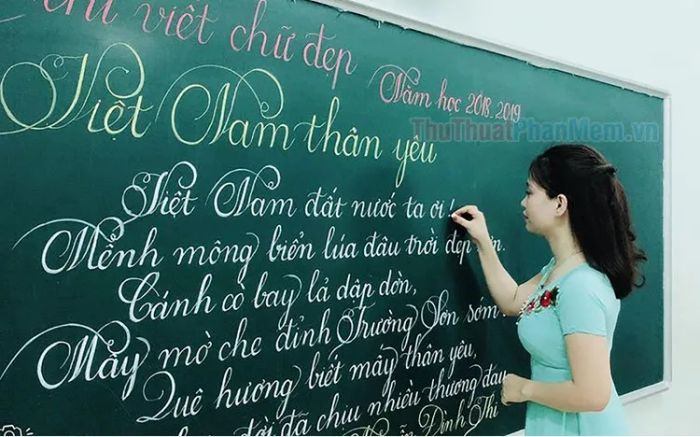 thi viết chữ đẹp
Năm học 2018-2019
ThuThuatPhanMem.vn
Việt Nam thân yêu
Việt Nam đất nước ta ơi!
Mênh mông biển lúa đâu trời đẹp hơn.
Cánh cò bay lả dập dờn,
Mây mờ che đỉnh Trường Sơn sớm
Quê hương biết mấy thân yêu,
đời đã chịu nhiều thương đau
Đình Thi